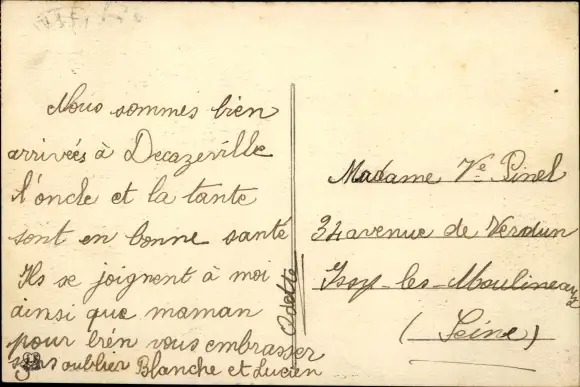 Nous sommes bien
arrivées à Decazeville
l'oncle et la tante
sont en bonne santé
Ils se joignent à moi
ainsi que maman
pour bien vous embrasser
sans oublier Blanche et Lucien
Odette
Madame Ve Pinel
34 avenue de Verdun
Issy-les-Moulineaux
(Seine)